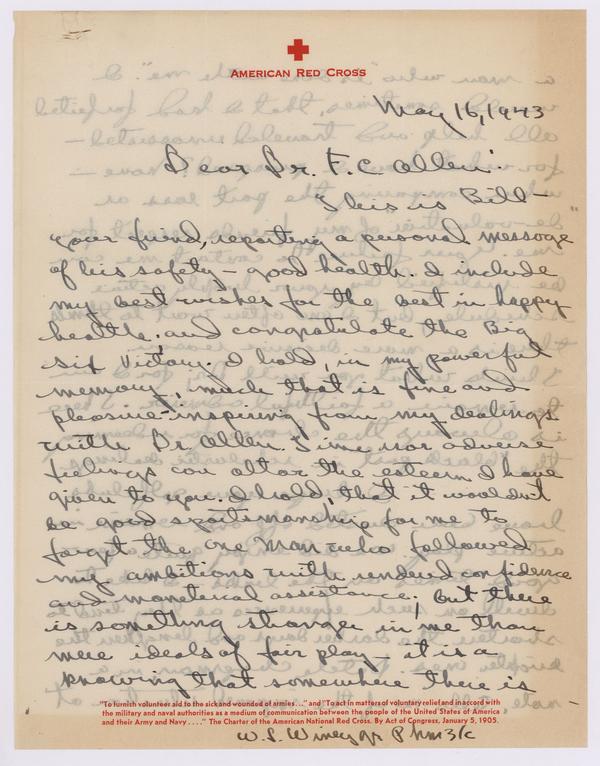 AMERICAN RED CROSS
May 16, 1943
Dear Dr. F. C. Allen:
This is Bill —
your friend, reporting a personal message
of his safety — good health. I include
my best wishes for the best in happy
health, and congratulate the Big
Six Victory. I hold, in my powerful
memory, much that is fine and
pleasure-inspiring from my dealings
with Dr. Allen. Time nor adverse
feelings can alter the esteem I have
given to you. I hold, that it wouldn't
be good sportsmanship for me to
forget the one man who followed
my ambitions with rendered confidence
and material assistance; but there
is something stronger in me than
mere ideals of fair play — it is a
knowing that somewhere there is
"To furnish volunteer aid to the sick and wounded of armies . . ." and "To act in matters of voluntary relief and in accord with
the military and naval authorities as a medium of communication between the people of the United States of America
and their Army and Navy . . . ." The Charter of the American National Red Cross. By Act of Congress, January 5, 1905.
W. S. Winey Jr PhM3/c